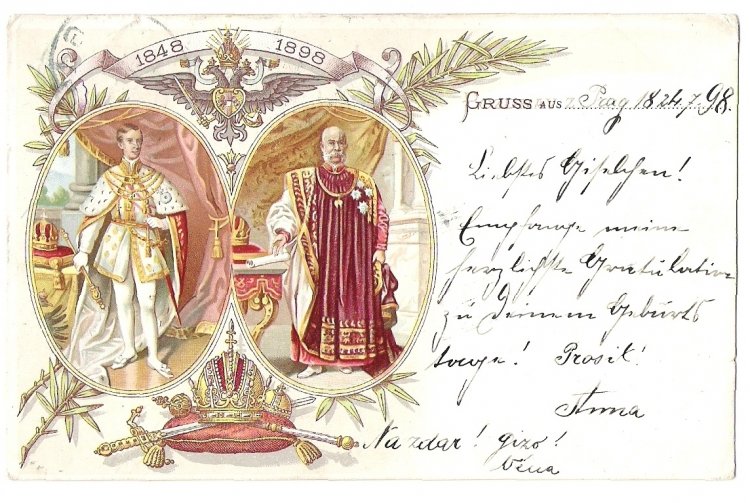 1848 1898
GRUSS AUS Prag 18 24/7 98.
Liebstes Giselchen!
Empfange meine
herzlichste Gratulation
zu Deinem Geburts
tage! Prosit!
Anna
Na zdar! gizo!